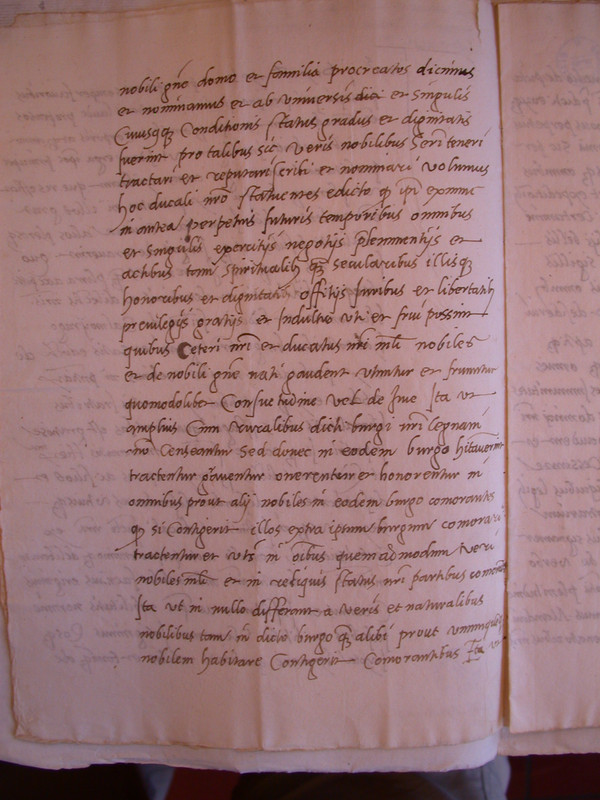 nobili gñe domo et familia procreatos dicimus
et nominamus et ab universis et singulis
Cuiusqȝ Conditionis status gradus et dignitatis
fuerint pro talibus sic veris nobilibus teneri
tractari et reputari scribi et nominari volumus
hoc ducali nrõ statuentes edicto qȝ ipi ex nunc
in antea perpetuis futuris temporibus omnibus
et singulis exercitijs negotijs et
actibus tam spiritualibȝ qȝ secularibus illisqȝ
honoribus et dignitatibȝ offitijs iuribus et libertatibȝ
previlegijs gratijs et Indultis uti et frui possint
quibus Ceteri nri et ducatus nri mli nobiles
et de nobili gñe nati gaudent utuntur et fruuntur
quomodolibet Consuetudine vel de Iure Ita ut
amplius Cum ruralibus dicti burgi nri legnani
nõ Censeantur sed donec in eodem burgo hitaverint
tractentur graventur onerentur et honorentur in
omnibus prout alij nobiles in eodem burgo comorantes
qȝ si Contigerit illos extra ipsum burgum comorari
tractentur et in oibus quemadmodum veri
nobiles mli et in reliquis status nri partibus comorantes
Ita ut in nullo differant a veris et naturalibus
nobilibus tam in dicto burgo qȝ alibi prout unumquemqȝ
nobilem habitare Contigerit Comorantibus Ita ut